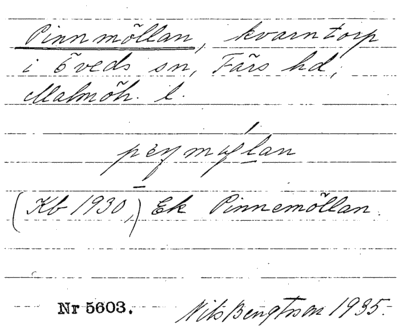 Pinnmöllan, kvarntorp
i Öveds sn, Färs hd,
Malmöh. l.
(Kb 1930,) Ek Pinnemöllan.
Nr 5603. Nils Bengtsson 1935.